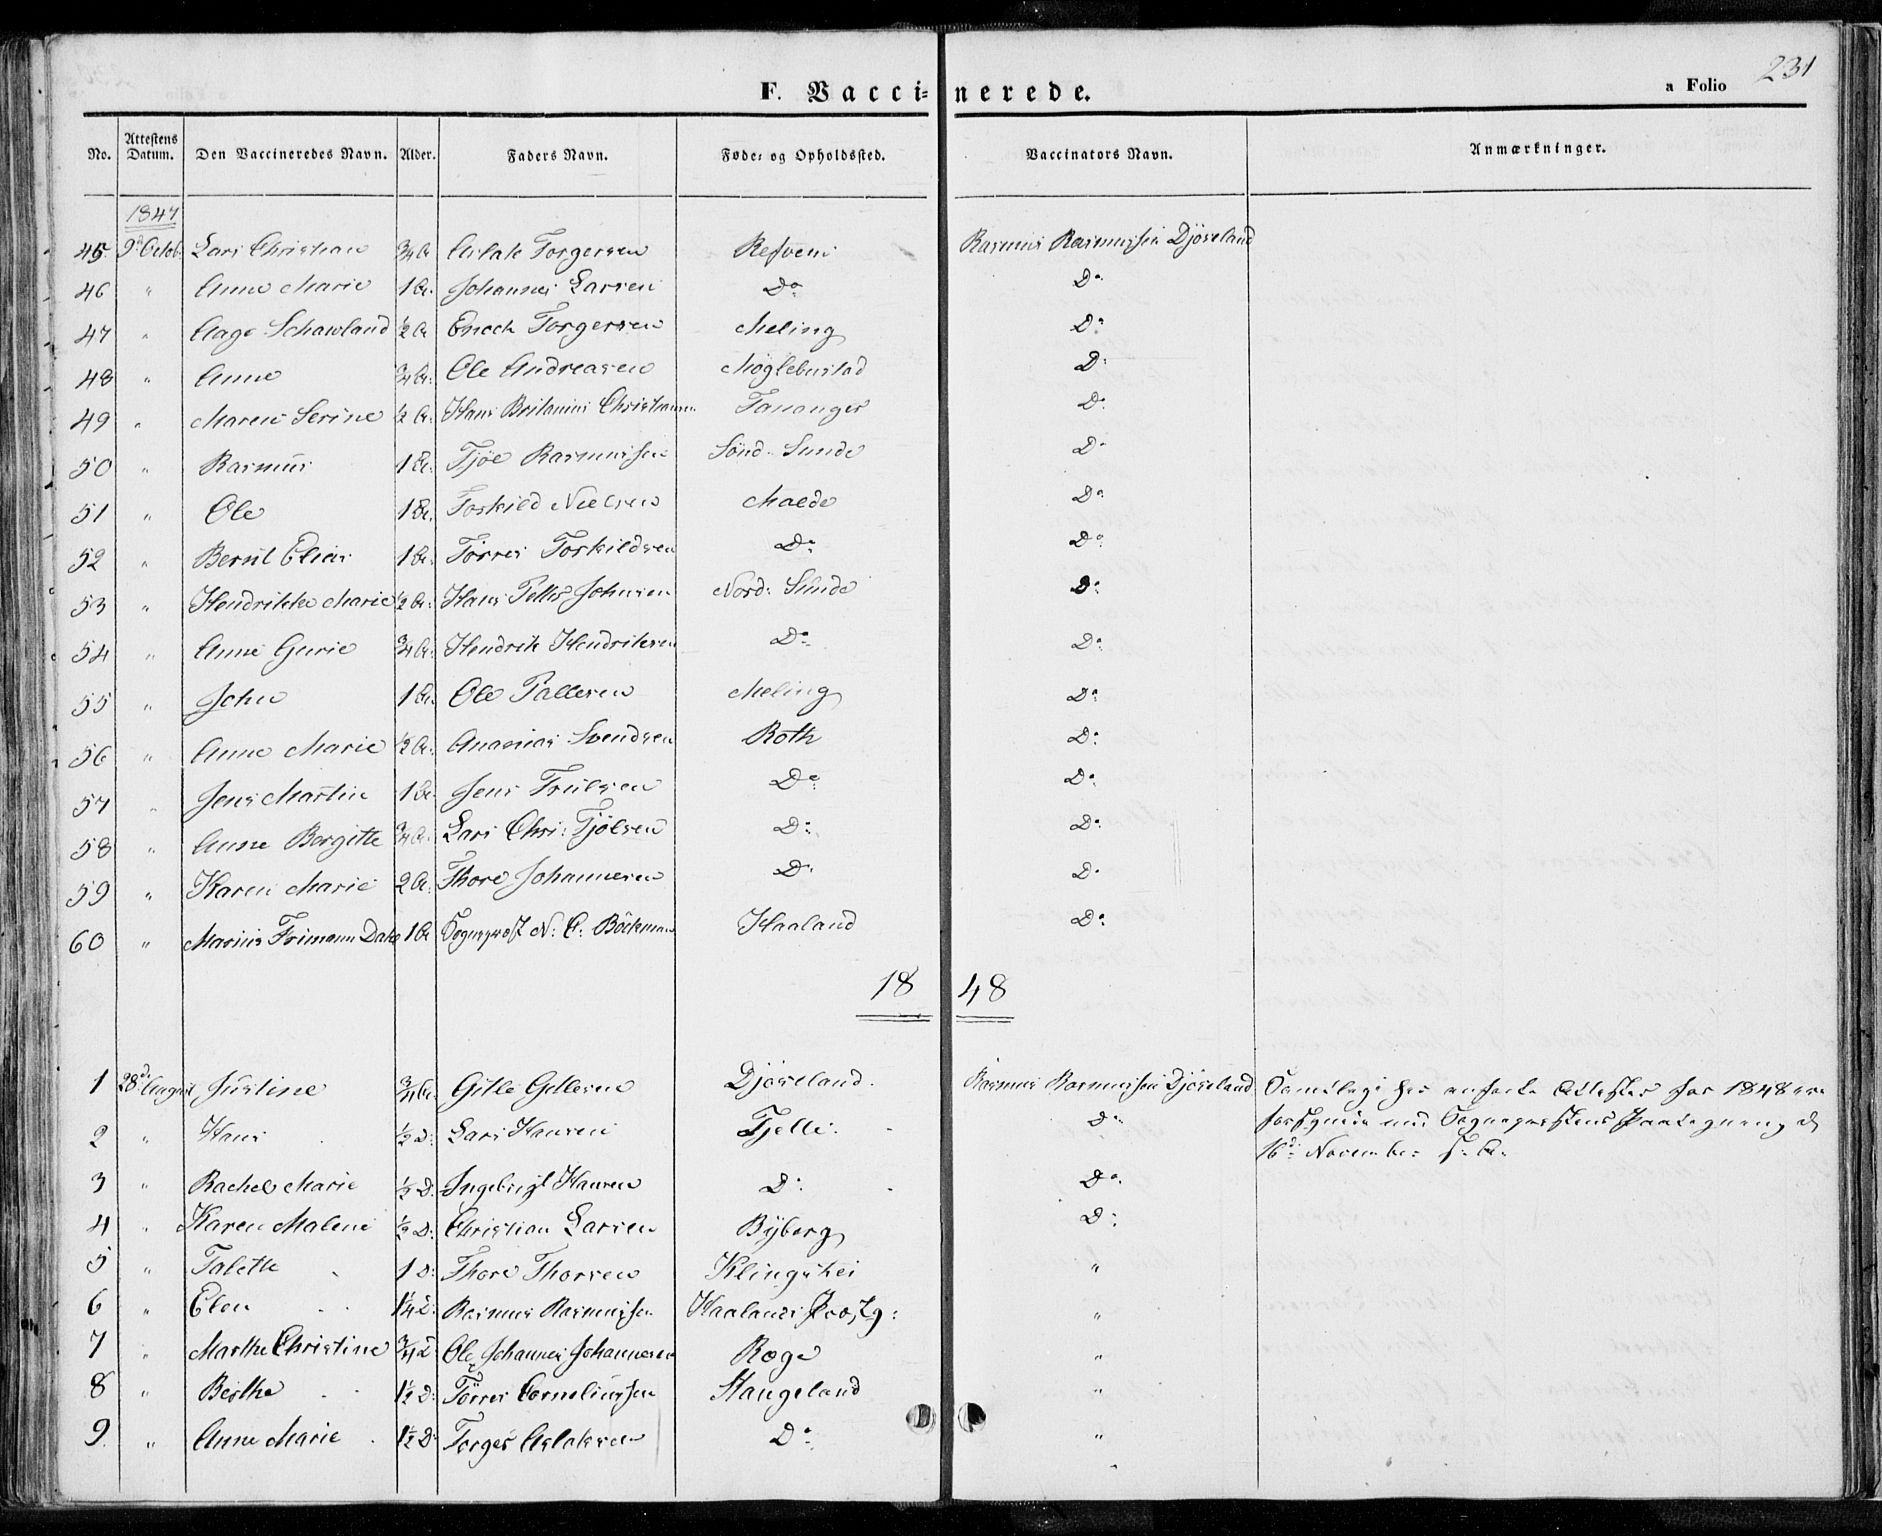 231
F. Vaccinerede. a Folio
No. Attestens Datum. Den Vaccineredes Navn. Alder. Faders Navn. Føde- og Opholdssted. Vaccinators Navn. Anmærkninger.
1847
45. 9d Octob. Lars Christian 3/4 A Aslak Torgersen Refvem Rasmus Rasmussen Djöseland
46 " Anne Marie 1 A. Johannes Larsen Do Do
47 " Aage Schawland 1/2 A Enoch Torgersen Meling Do
48 " Anne 3/4 A. Ole Andreasen Möglebustad D:
49 " Maren Serine 1/2 A. Hans Britanius Christiansen Tananger D:
50 " Rasmus 1 A. Tjöe Rasmussen Sönd. Sunde Do
51 " Ole 1 A. Torkild Nielsen Malde Do
52 " Bernt Elias 1 A. Törres Torkildsen Do Do
53 " Hendrikke Marie 1/2 A. Hans Petter Johnsen Nord. Sunde D:
54 " Anne Gurie 3/4 A. Hendrik Hendriksen Do Do
55 " John 1 A. Ole Pallesen Meling Do
56 " Anne Marie 1/2 A. Ananias Svendsen Roth D:
57 " Jens Martin 1 A. Jens Trulsen Do Do
58 " Anne Bergitte 3/4 A. Lars Chri: Tjölsen D: D:
59 " Karen Marie 2 A. Thore Johannesen D: D.
60 " Marius Frimann Dahl 1 A Sogneprest N: A: Böckmann Haaland Do
18 48
1 28d. August Justine 3/4 A. Gitle Gitlesen Djöseland. Rasmus Rasmussen Djöseland Samtlige her anförte Attester for 1848 ere
2 " Hans 1/2 D: Lars Hansen Tjelle. Do forsynede med Sogneprestens Paategning d.
16d. November s. A.
3 " Rachel Marie 1/2 D: Ingebrigt Hansen D: Do
4 " Karen Malene 1/2 D: Christian Larsen Byberg D:
5 " Talette 1 D: Thore Thorsen Klingshei "
6 " Elen 1/4 D: Rasmus Rasmussen Haalands Prestg: "
7 " Marthe Christine 3/4 D Ole Johannes Johannesen Roge "
8 " Berthe 1 1/2 D: Törres Corneliussen Haugeland "
9 " Anne Marie 1 1/2 D: Torger Aslaksen Do "